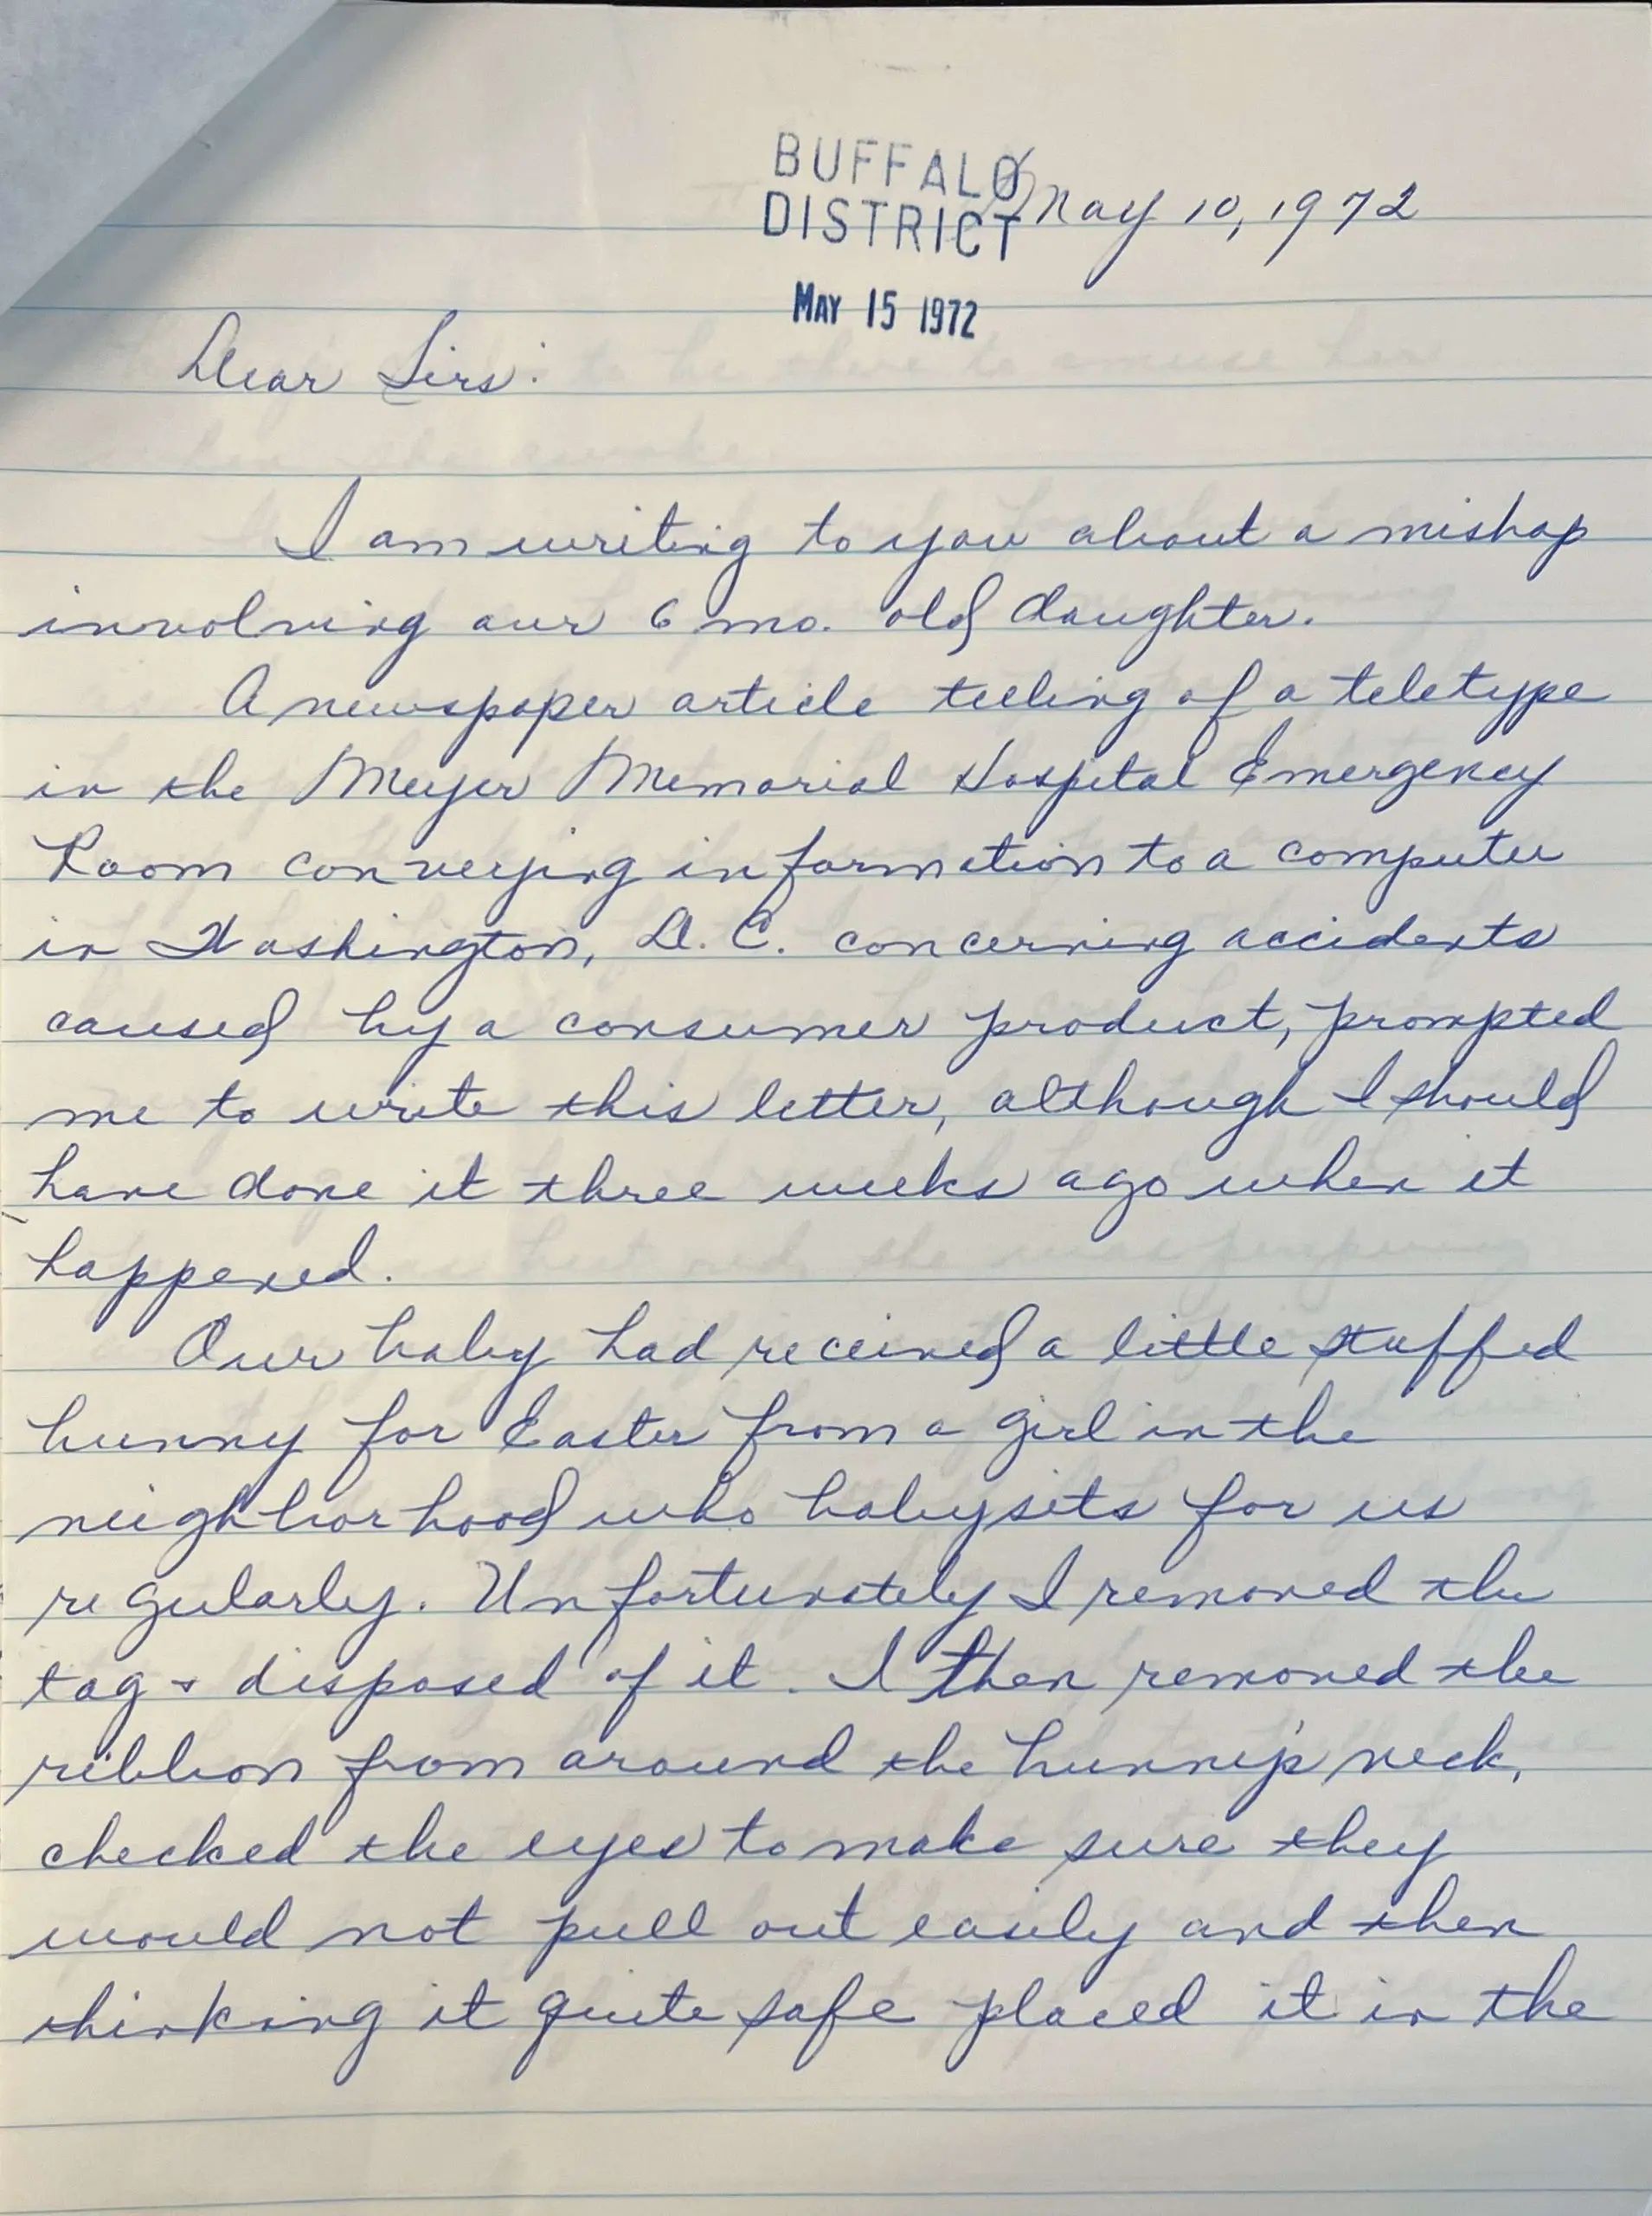 BUFFALO
DISTRICT May 10, 1972
MAY 15 1972
Dear Sirs:
I am writing to you about a mishap
involving our 6 mo. old daughter.
A newspaper article telling of a teletype
in the Meyer Memorial Hospital Emergency
Room conveying information to a computer
in Washington, D.C. concerning accidents
caused by a consumer product, prompted
me to write this letter, although I should
have done it three weeks ago when it
happened.
Our baby had received a little stuffed
bunny for Easter from a girl in the
neighborhood who babysits for us
regularly. Unfortunately I removed the
tag & disposed of it. I then removed the
ribbon from around the bunny's neck,
checked the eyes to make sure they
would not pull out easily and then
thinking it quite safe placed it in the